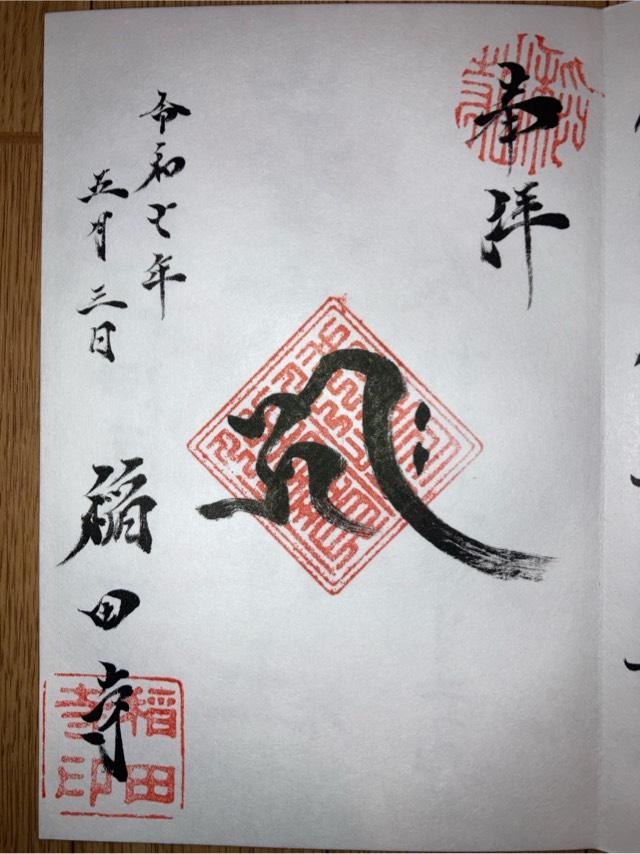 奉拝
𑖮𑖿𑖨𑖱𑖾
令和七年
五月三日
稲田寺
稲田
寺印